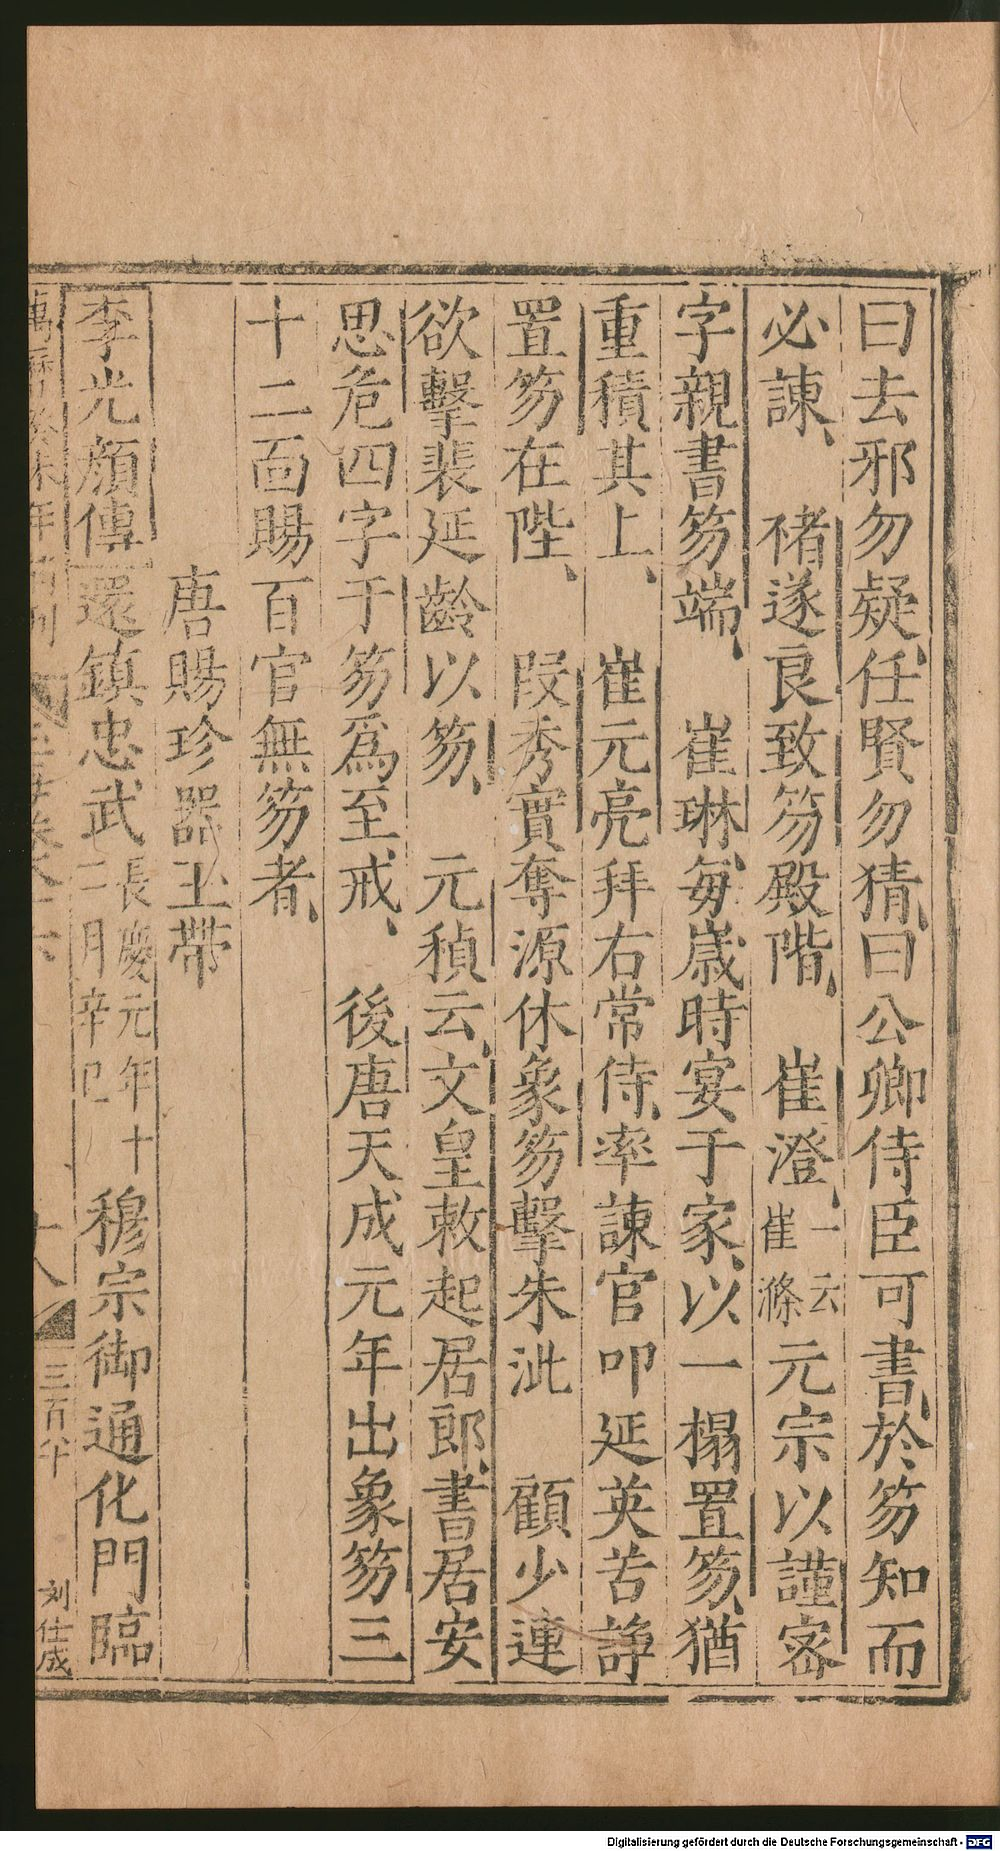 曰去邪勿疑任賢勿猜曰公卿侍臣可書於笏知而
必諫　褚遂良致笏殿階　崔澄一云崔滌元宗以謹密
字親書笏端　崔琳每歲時宴于家以一榻置笏猶
重積其上　崔元亮拜右常侍率諫官叩延英苦諍
置笏在陛　段秀實奪源休象笏擊朱泚　顧少連
欲擊裴延齡以笏　元稹云文皇敕起居郎書居安
思危四字于笏爲至戒　後唐天成元年出象笏三
十二面賜百官無笏者
唐賜珍器玉帶
李光顏傳還鎮忠武長慶元年十二月辛巳　穆宗御通化門臨
萬曆癸未年補刊
十八
三百八十
刘仕成
Digitalisierung gefördert durch die Deutsche Forschungsgemeinschaft - DFG